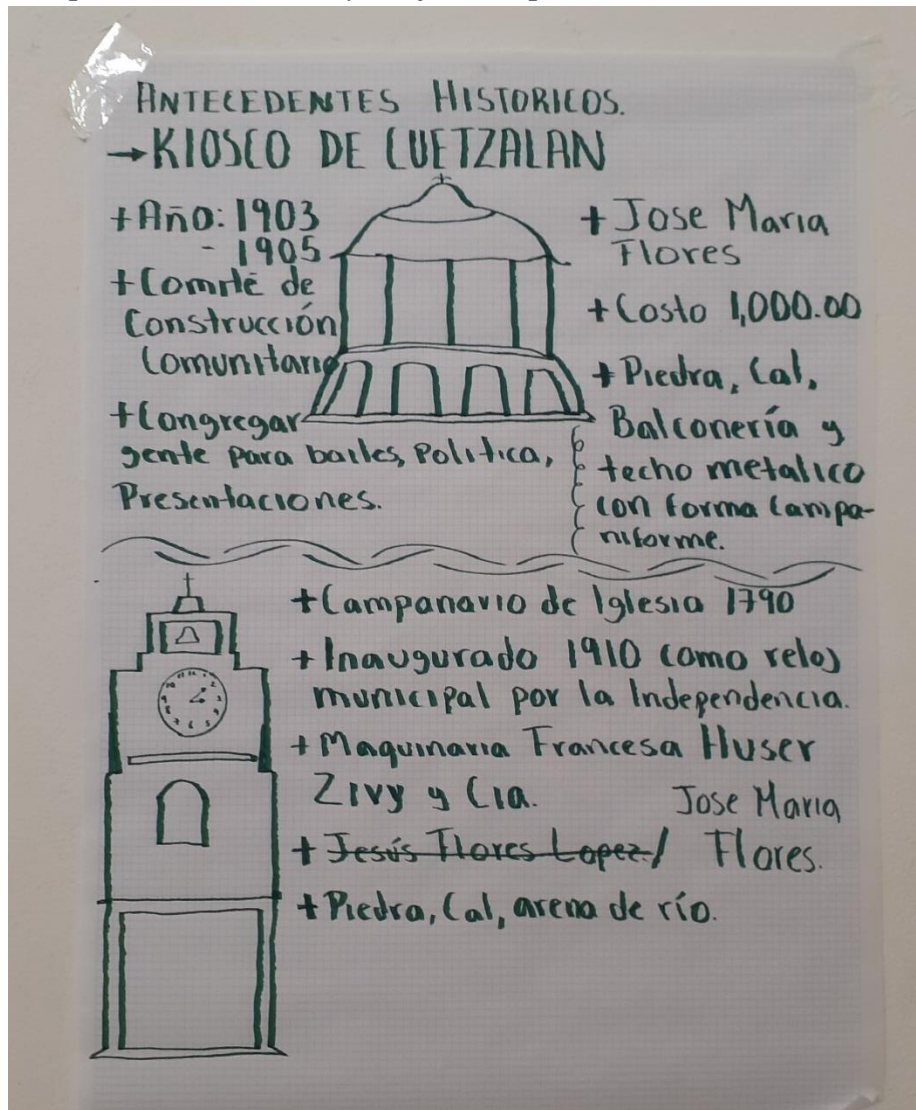 ANTECEDENTES HISTORICOS.
→KIOSCO DE CUETZALAN
+Año: 1903
- 1905
+Comité de
Construcción
Comunitario
+Congregar
gente para bailes, Politica,
Presentaciones.
+ Jose Maria
Flores
+Costo 1,000.00
+ Piedra, Cal,
Balconería y
techo metalico
con forma campa-
niforme.
+Campanario de Iglesia 1790
+Inaugurado 1910 como reloj
municipal por la Independencia.
+ Maquinaria Francesa Huser
Zivy y Cia.
+ Jesús Flores Lopez / Jose Maria
Flores.
+Piedra, Cal, arena de río.